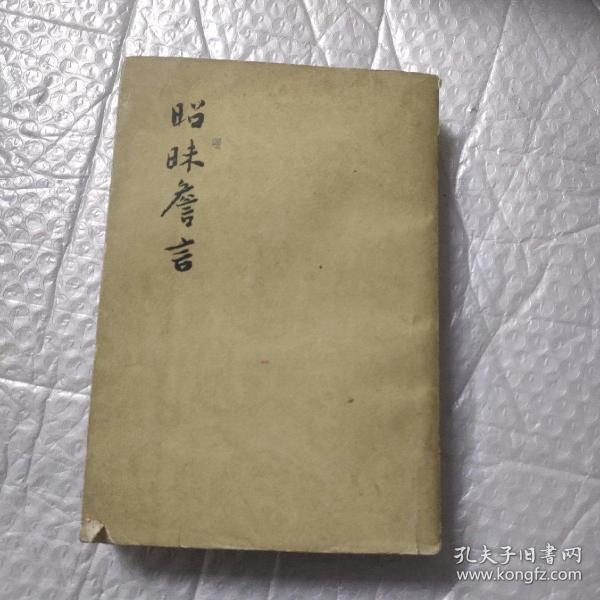 昭昧詹言
孔夫子旧书网
www.kongfz.com